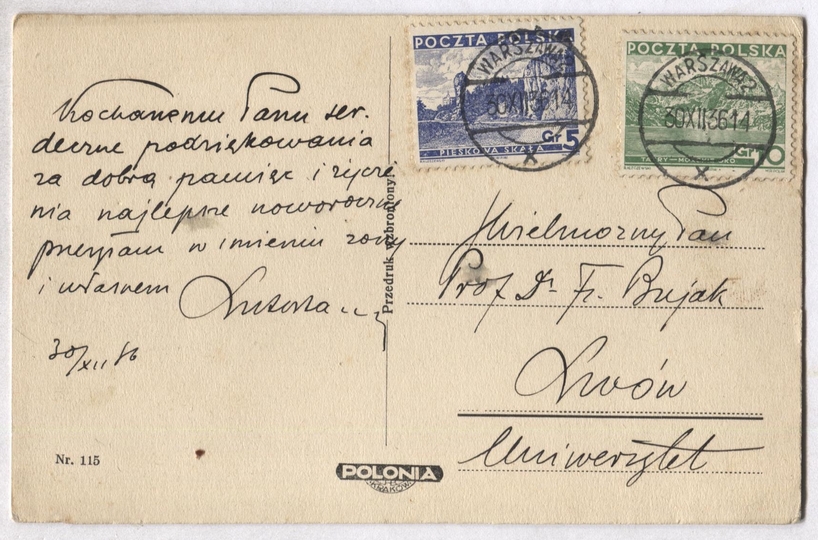 Kochanemu Panu ser.
deczne podziękowania
za dobrą pamięć i życze
nia najlepsze noworoczne
przesyłam w imieniu żony
i własnem
30/XII 36
Nr. 115
Przedruk wzbroniony.
POLONIA
KRAKÓW
POCZTA POLSKA
WARSZAWA 2
30 XII 36 14
X
Gr 5
PIESKOWA SKAŁA
POCZTA POLSKA
WARSZAWA 2
30 XII 36 14
X
Gr 10
TATRY—MORSKIE OKO
Wielmożny Pan
Prof. Dr Fr. Bujak
Lwów
Uniwersytet